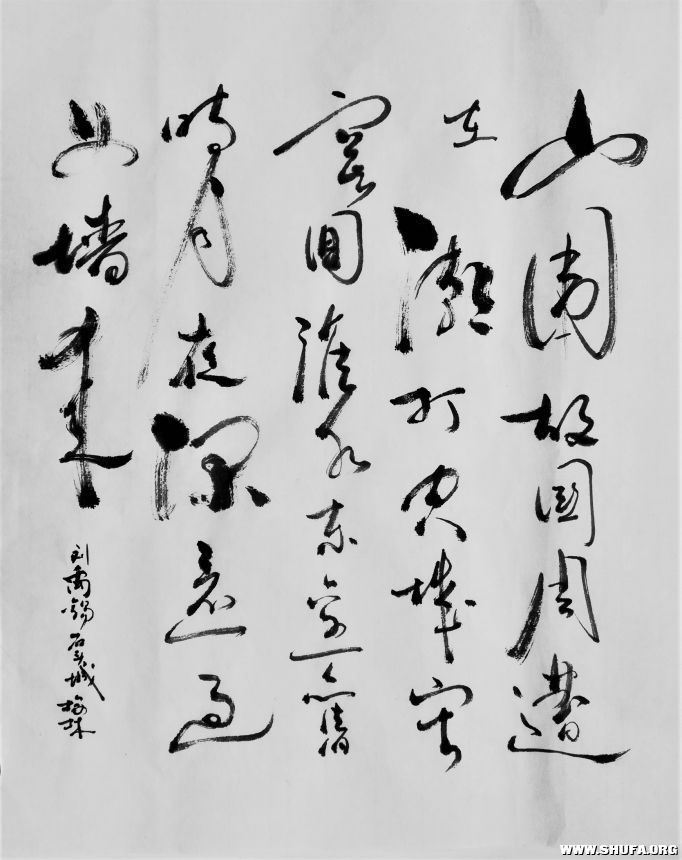 山圍故國周遭
在潮打空城寂
寞回淮水东邊舊
時月夜深還過
女墙来
刘禹锡石头城
WWW.SHUFA.ORG